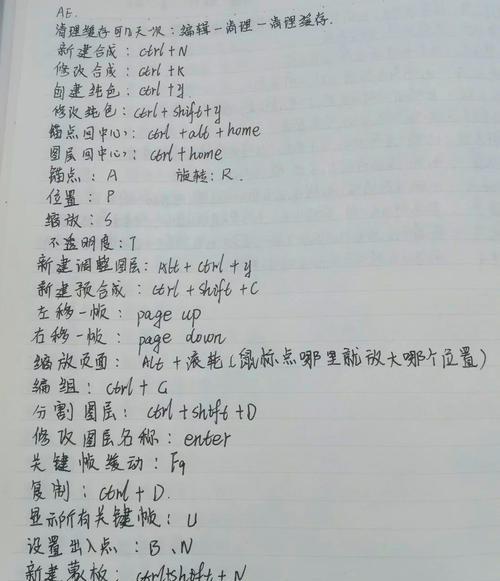 AE.
清理缓存可几天一次：编辑一清理一清理缓存.
新建合成：ctrl+N
修改合成：ctrl+K
创建纯色：ctrl+y
修改纯色：ctrl+shift+y
锚点回中心：ctrl+alt+home
图层回中心：ctrl+home
锚点：A 旋转：R.
位置：P
缩放：S
不透明度：T
新建调整图层：Alt+ctrl+y
新建预合成：ctrl+shift+C
左移一帧：page up
右移一帧：page down
缩放页面：Alt+滚轮(鼠标点哪里就放大哪个位置)
编组：ctrl+G
分割图层：ctrl+shift+D
修改图层名称：enter
关键帧缓动：F9
复制：ctrl+D.
显示所有关键帧：U
设置出入点：B、N
新建蒙板：ctrl+shift+N